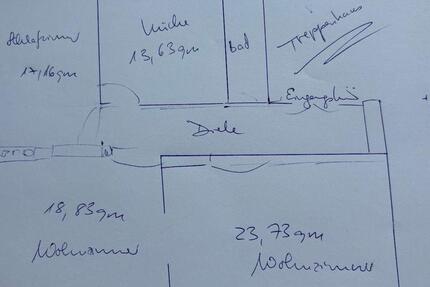 Schlafzimmer
17,16qm
Küche
13,63qm
bad
Treppenhaus
Eingangstür
Diele
18,83qm
Wohnzimmer
23,73qm
Wohnzimmer